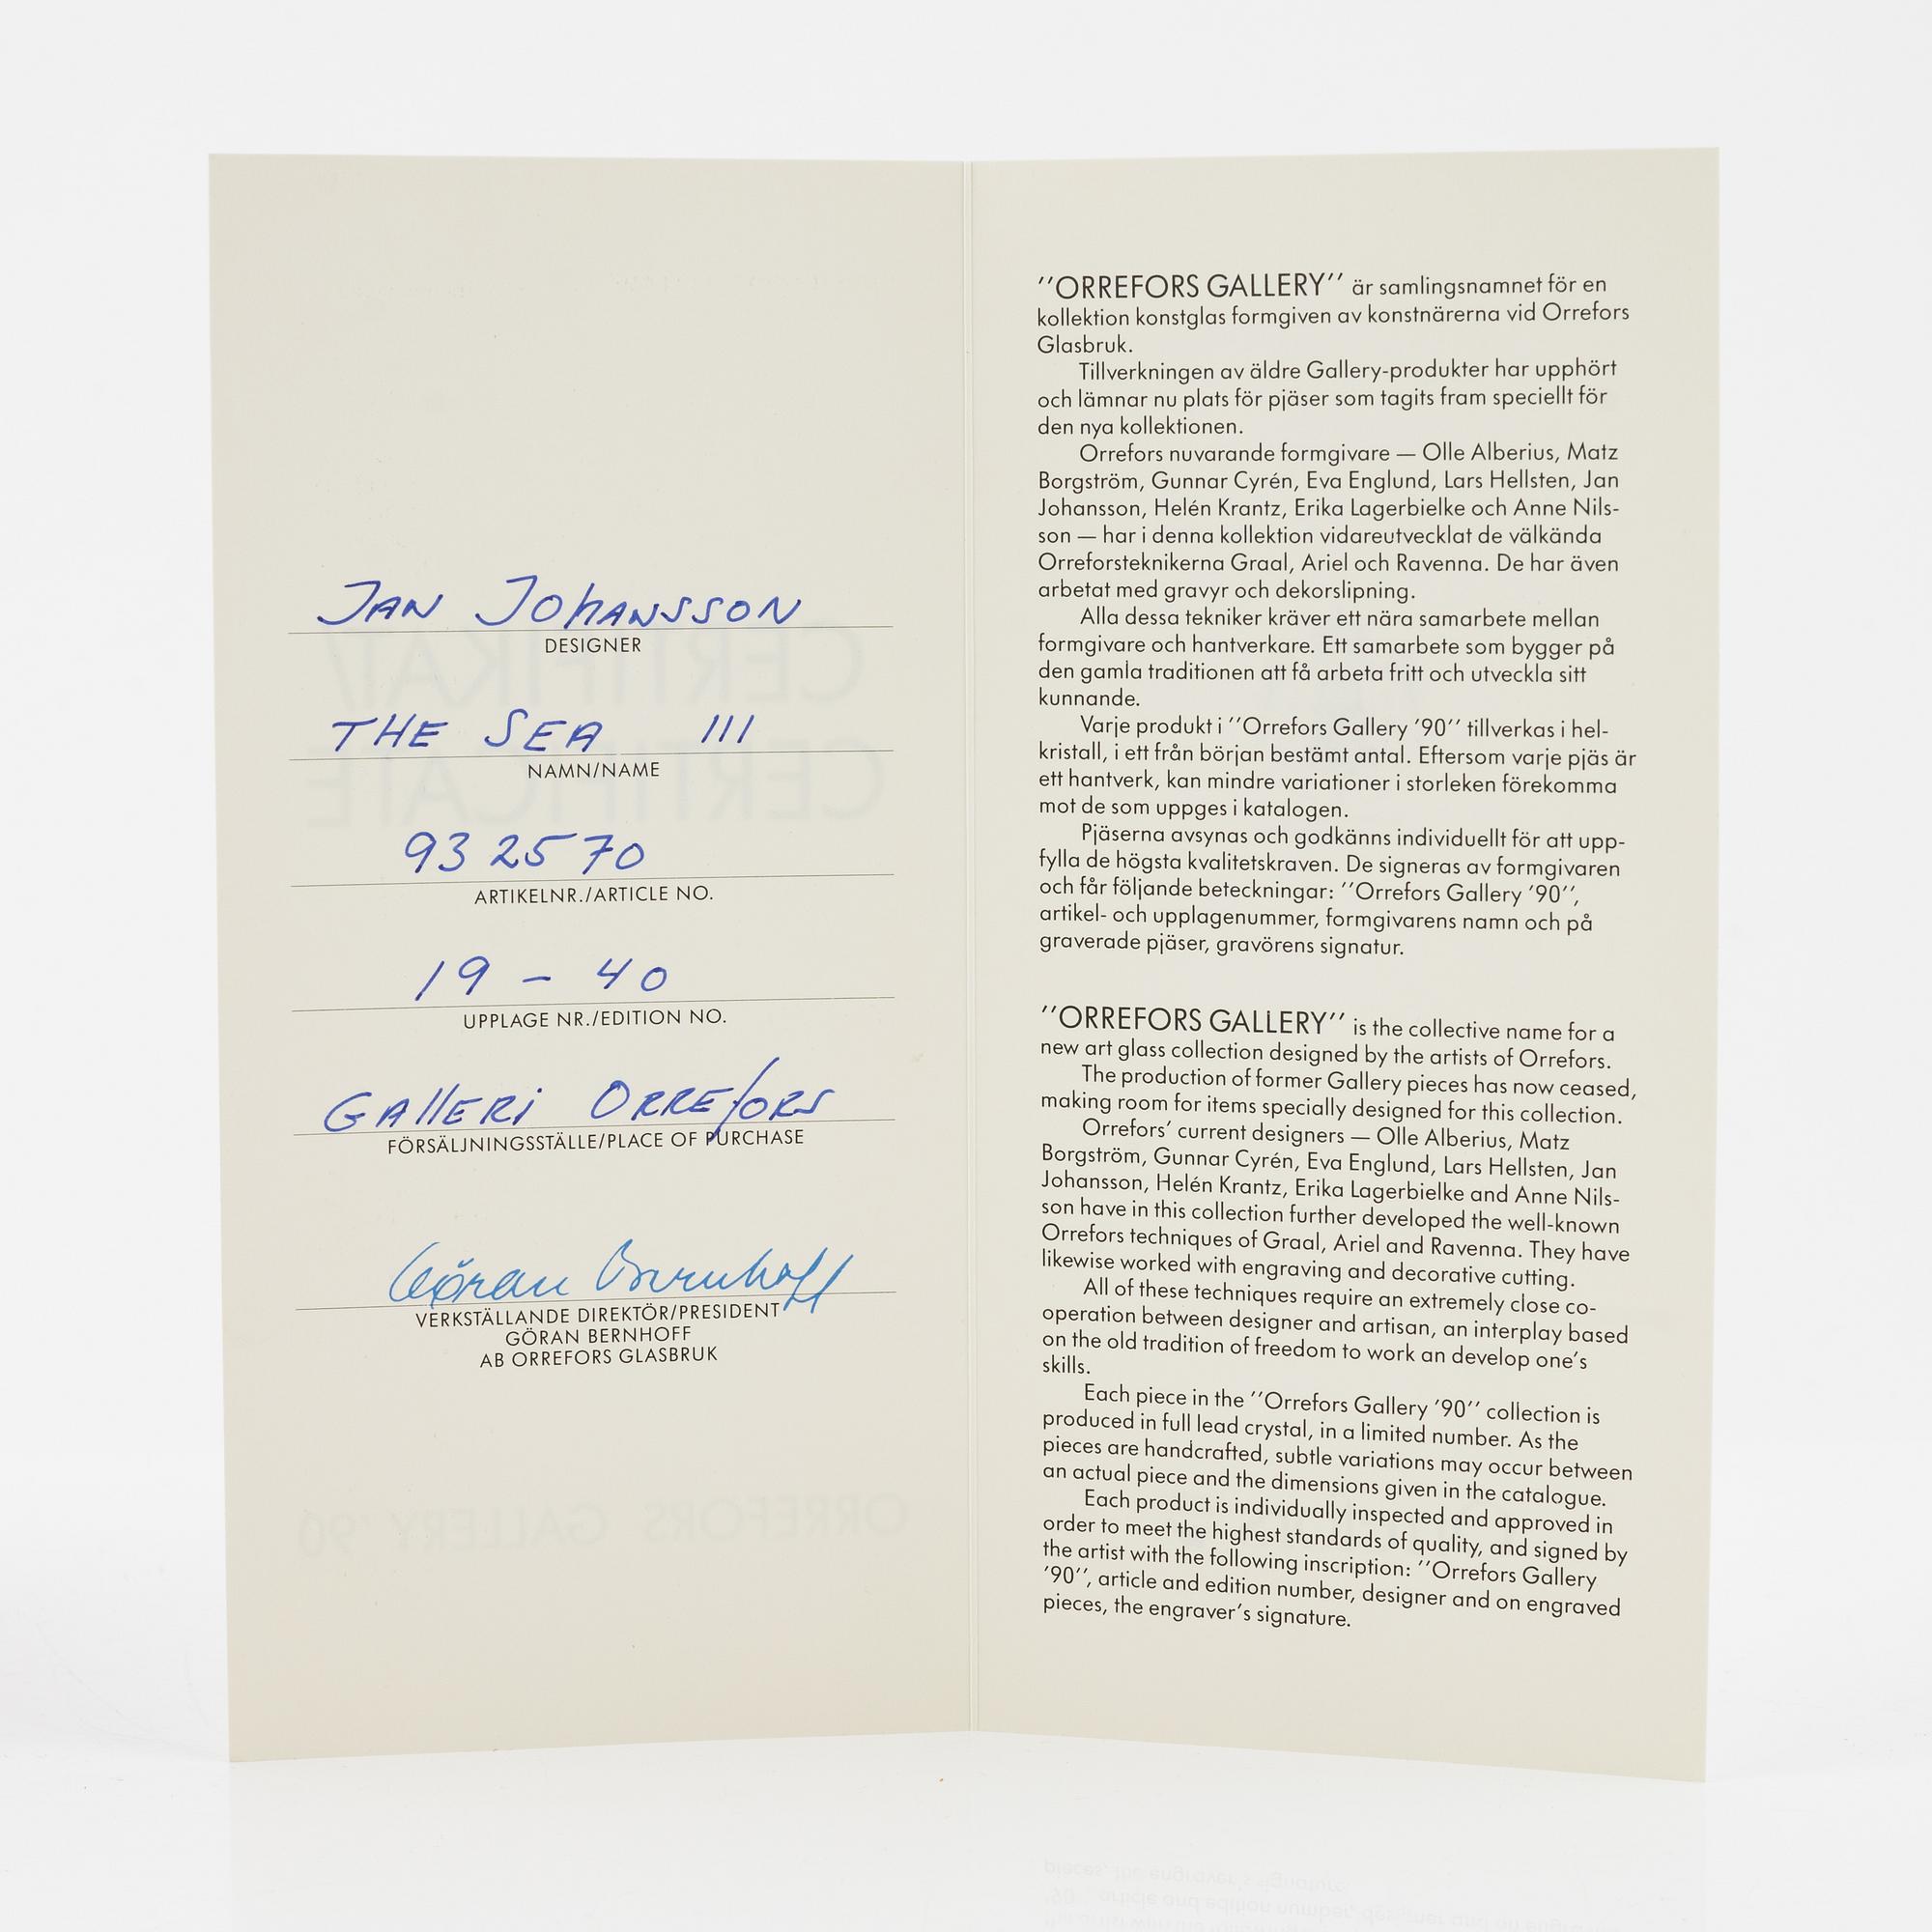 JAN JOHANSSON
DESIGNER
THE SEA III
NAMN/NAME
932570
ARTIKELNR./ARTICLE NO.
19 - 40
UPPLAGE NR./EDITION NO.
GALLERI ORREFORS
FÖRSÄLJNINGSSTÄLLE/PLACE OF PURCHASE
Göran Bernhoff
VERKSTÄLLANDE DIREKTÖR/PRESIDENT
GÖRAN BERNHOFF
AB ORREFORS GLASBRUK
CERTIFIKAT/
CERTIFICATE
ORREFORS GALLERY '90
''ORREFORS GALLERY'' är samlingsnamnet för en
kollektion konstglas formgiven av konstnärerna vid Orrefors
Glasbruk.
Tillverkningen av äldre Gallery-produkter har upphört
och lämnar nu plats för pjäser som tagits fram speciellt för
den nya kollektionen.
Orrefors nuvarande formgivare — Olle Alberius, Matz
Borgström, Gunnar Cyrén, Eva Englund, Lars Hellsten, Jan
Johansson, Helén Krantz, Erika Lagerbielke och Anne Nils-
son — har i denna kollektion vidareutvecklat de välkända
Orreforsteknikerna Graal, Ariel och Ravenna. De har även
arbetat med gravyr och dekorslipning.
Alla dessa tekniker kräver ett nära samarbete mellan
formgivare och hantverkare. Ett samarbete som bygger på
den gamla traditionen att få arbeta fritt och utveckla sitt
kunnande.
Varje produkt i ''Orrefors Gallery '90'' tillverkas i hel-
kristall, i ett från början bestämt antal. Eftersom varje pjäs är
ett hantverk, kan mindre variationer i storleken förekomma
mot de som uppges i katalogen.
Pjäserna avsynas och godkänns individuellt för att upp-
fylla de högsta kvalitetskraven. De signeras av formgivaren
och får följande beteckningar: ''Orrefors Gallery '90'',
artikel- och upplagenummer, formgivarens namn och på
graverade pjäser, gravörens signatur.
''ORREFORS GALLERY'' is the collective name for a
new art glass collection designed by the artists of Orrefors.
The production of former Gallery pieces has now ceased,
making room for items specially designed for this collection.
Orrefors' current designers — Olle Alberius, Matz
Borgström, Gunnar Cyrén, Eva Englund, Lars Hellsten, Jan
Johansson, Helén Krantz, Erika Lagerbielke and Anne Nils-
son have in this collection further developed the well-known
Orrefors techniques of Graal, Ariel and Ravenna. They have
likewise worked with engraving and decorative cutting.
All of these techniques require an extremely close co-
operation between designer and artisan, an interplay based
on the old tradition of freedom to work an develop one's
skills.
Each piece in the ''Orrefors Gallery '90'' collection is
produced in full lead crystal, in a limited number. As the
pieces are handcrafted, subtle variations may occur between
an actual piece and the dimensions given in the catalogue.
Each product is individually inspected and approved in
order to meet the highest standards of quality, and signed by
the artist with the following inscription: ''Orrefors Gallery
'90'', article and edition number, designer and on engraved
pieces, the engraver's signature.